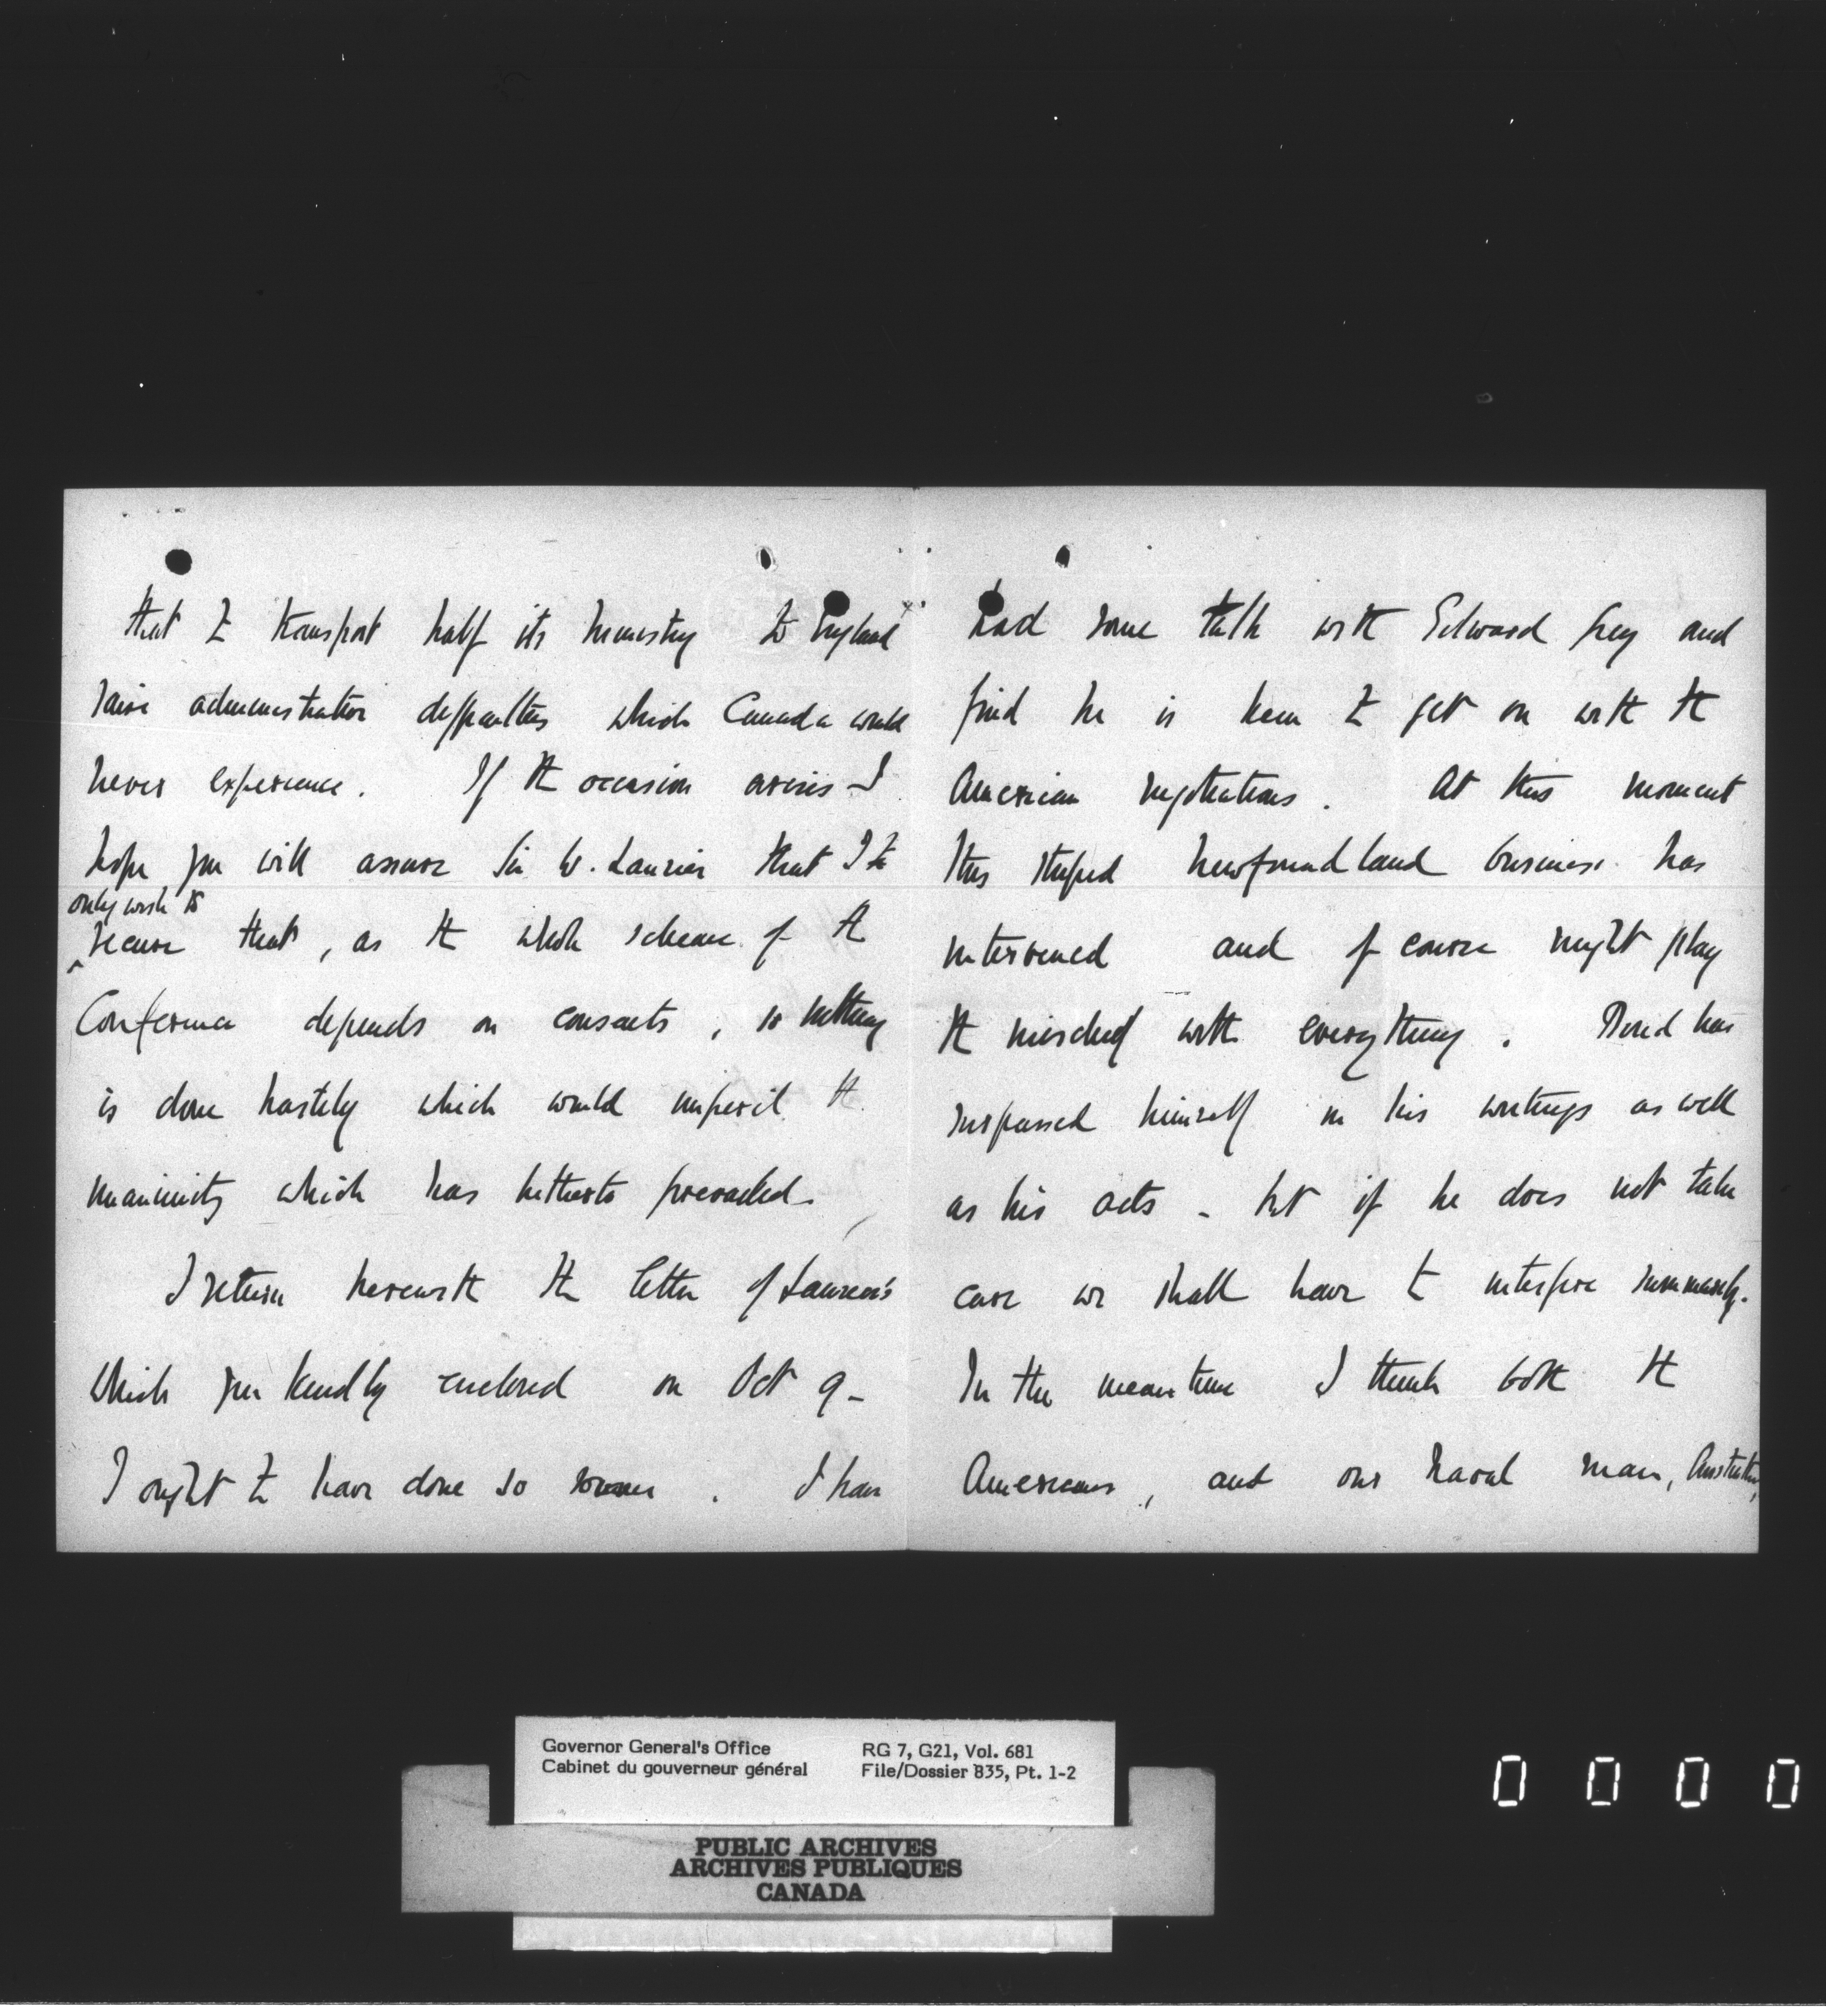 that to transport half its ministry to England
raise administrative difficulties which Canada would
never experience. If the occasion arises I
hope you will assure Sir W. Laurier that I
only wish to
secure that, as the whole scheme of the
Conference depends on consents, so nothing
is done hastily which would imperil the
unanimity which has hitherto prevailed.
I return herewith the letter of Laurier's
which you kindly enclosed on Oct 9.
I ought to have done so sooner. I have
had some talk with Edward Grey and
find he is keen to get on with the
American negotiations. At this moment
this stupid Newfoundland business has
intervened and of course might play
the mischief with everything. Bond has
surpassed himself in his writings as well
as his acts - but if he does not take
care we shall have to interfere summarily.
In the meantime I think both the
Americans, and our naval man, Anstruther,
Governor General's Office
Cabinet du gouverneur général
RG 7, G21, Vol. 681
File/Dossier 835, Pt. 1-2
PUBLIC ARCHIVES
ARCHIVES PUBLIQUES
CANADA
0 0 0 0